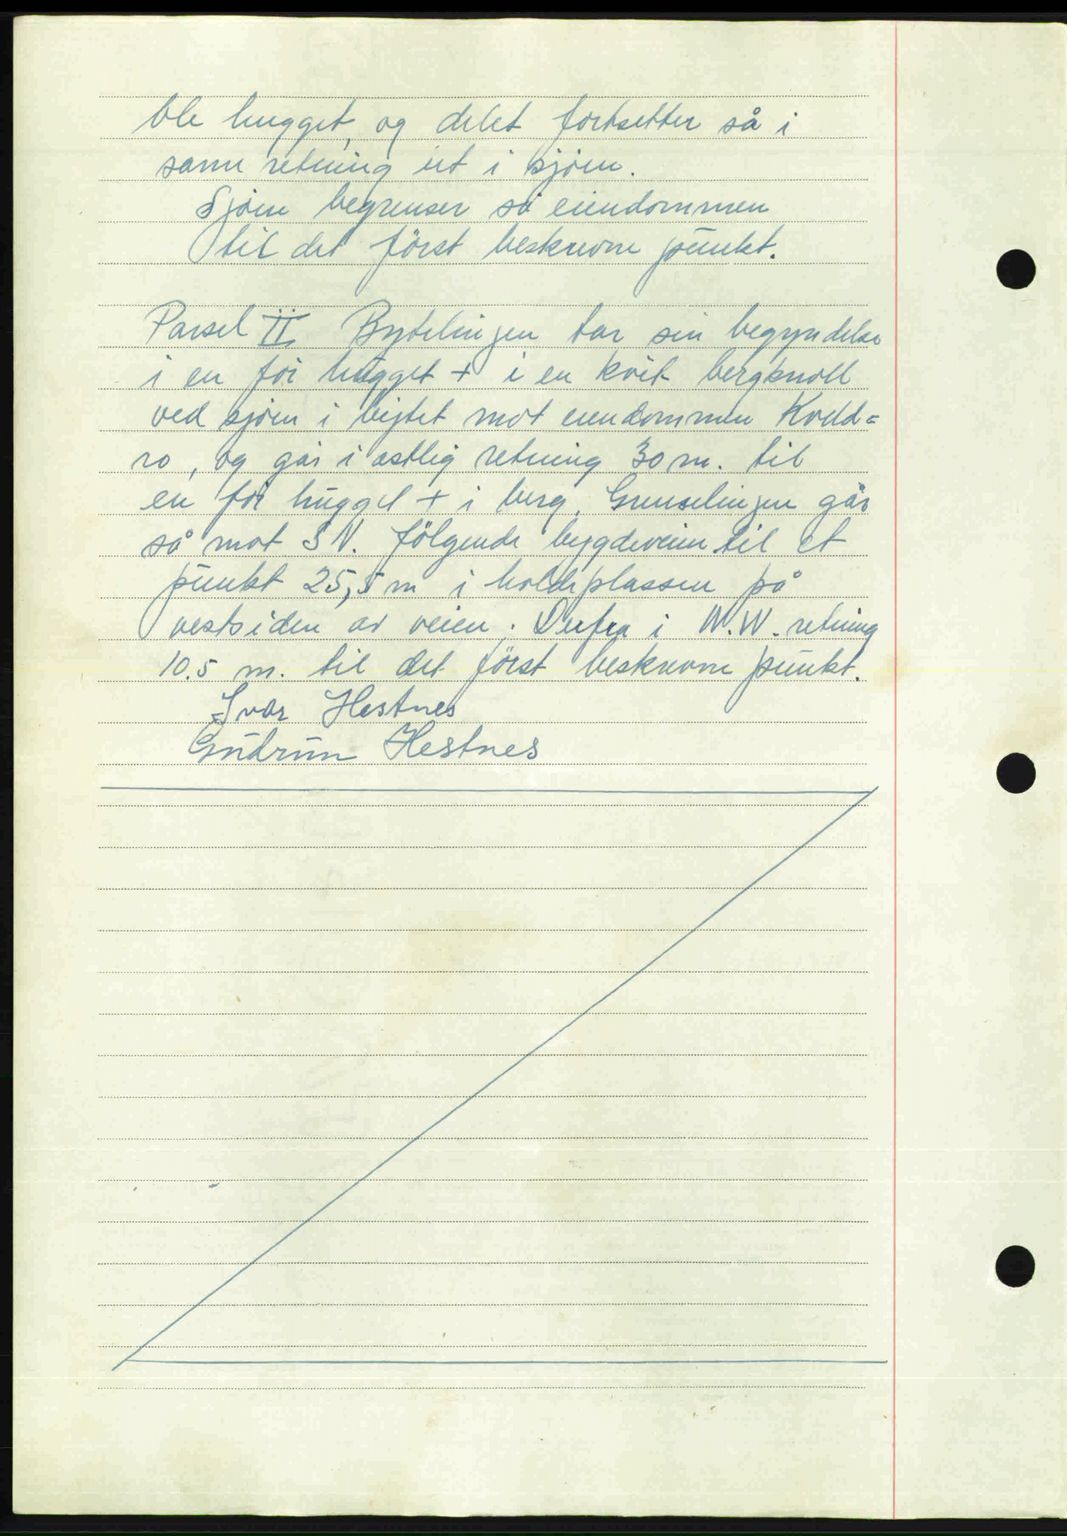 ble hugget, og delet fortsetter så i
samme retning ut i sjøen.
Sjøen begrenser så eiendommen
til det først beskrevne punkt.
Parsel II Bytelingen tar sin begyndelse
i en før hugget + i en kvit bergknoll
ved sjøen i bytet mot eiendommen Kvild=
ro, og går i østlig retning 30 m. til
en før hugget + i berg. Grenselinjen går
så mot S N. følgende bygdeveien til et
punkt 25,5 m i holdeplassen på
vestsiden av veien. Derfra i N.W. retning
10.5 m. til det først beskrevne punkt.
Ivar Hestnes
Gudrun Hestnes